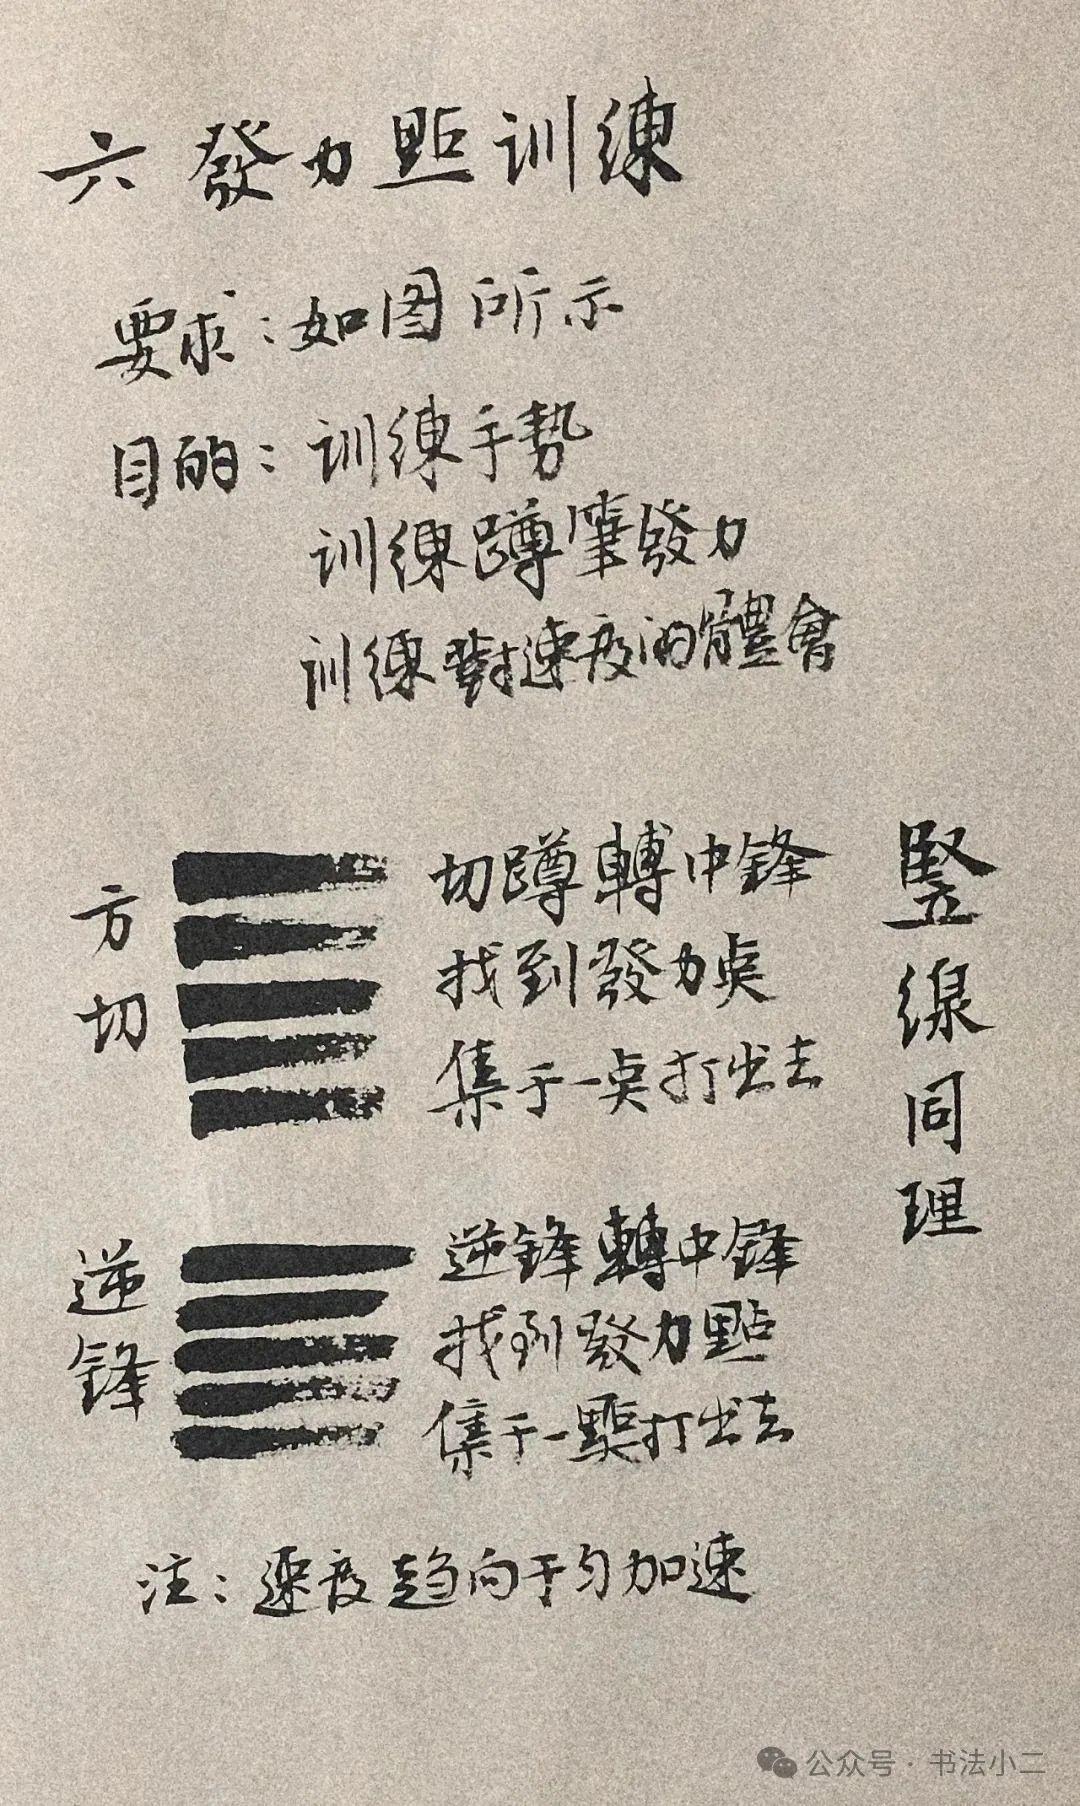 六 發力點训練
要求：如图所示
目的：训練手勢
训練蹲筆發力
训練對速度的體會
方切
切蹲轉中鋒
找到發力点
集于一点打出去
逆鋒
逆鋒轉中鋒
找到發力點
集于一點打出去
竖線同理
注：速度趋向于匀加速
公众号·书法小二